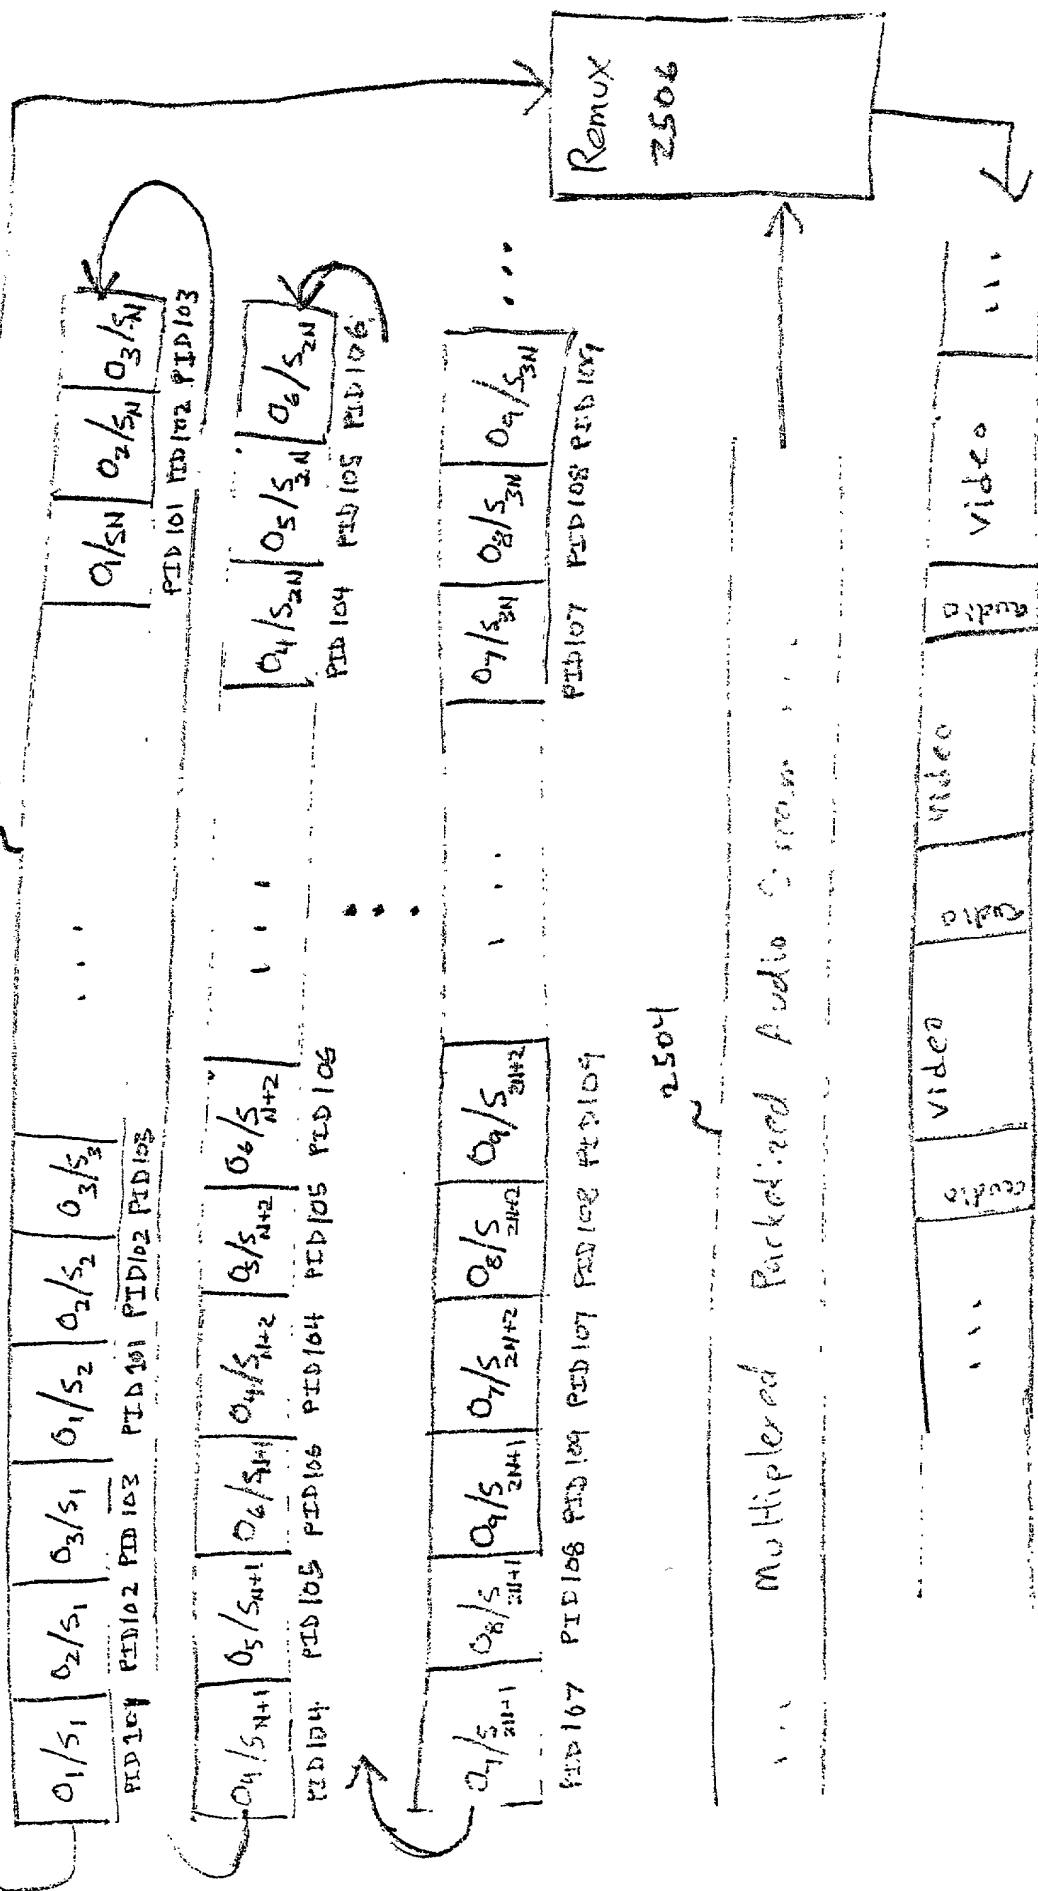 Remux
2506
O1/S1 O2/S1 O3/S1 O1/S2 O2/S2 O3/S3 ... O1/SN O2/SN O3/SN
PID101 PID102 PID103 PID101 PID102 PID103 PID101 PID102 PID103
O4/SN+1 O5/SN+1 O6/SN+1 O4/SN+2 O5/SN+2 O6/SN+2 ... O4/S2N O5/S2N O6/S2N
PID104 PID105 PID106 PID104 PID105 PID106 PID104 PID105 PID106
O7/S2N+1 O8/S2N+1 O9/S2N+1 O7/S2N+2 O8/S2N+2 O9/S2N+2 ... O7/S3N O8/S3N O9/S3N ...
PID107 PID108 PID109 PID107 PID108 PID109 PID107 PID108 PID109
2504
... Multiplexed Packetized Audio Stream ...
... audio video audio video audio video ...